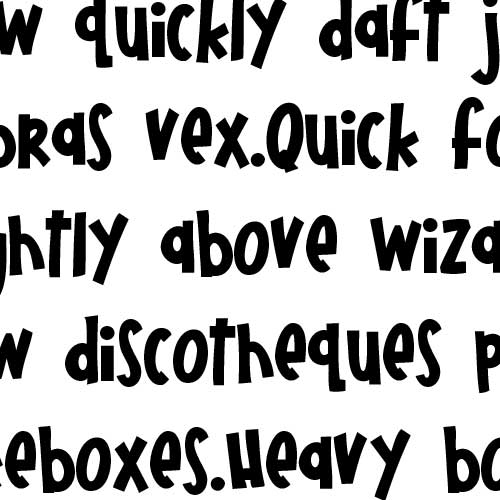 w quickly daft j
bras vex.Quick fo
ghtly above wiza
w discotheques p
eeboxes.Heavy bo